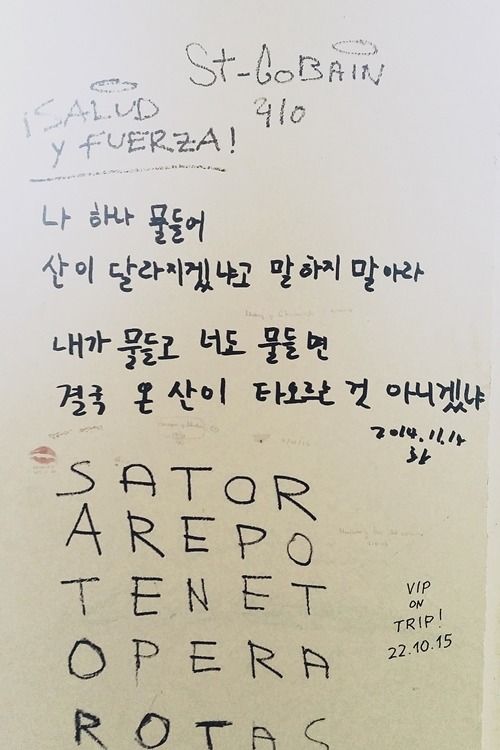 St-GoBAIN
¡SALUD
y FUERZA!
나 하나 물들어
산이 달라지겠냐고 말하지 말아라
내가 물들고 너도 물들면
결국 온 산이 타오르는 것 아니겠냐
2014.11.14
SATOR
AREPO
TENET
OPERA
ROTAS
VIP
ON
TRIP!
22.10.15